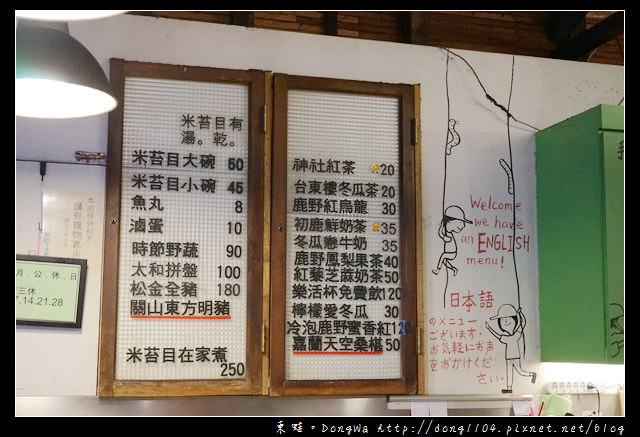 米苔目有
湯。乾。
米苔目大碗 60
米苔目小碗 45
魚丸 8
滷蛋 10
時節野蔬 90
太和拼盤 100
松金全豬 180
關山東方明豬
米苔目在家煮
250
神社紅茶 ★20
台東樓冬瓜茶20
鹿野紅烏龍 30
初鹿鮮奶茶 ★35
冬瓜戀牛奶 35
鹿野鳳梨果茶40
紅藜芝麻奶茶50
樂活杯免費飲120
檸檬愛冬瓜 30
冷泡鹿野蜜香紅120
嘉蘭天空桑椹 50
Welcome
we have
an ENGLISH
menu!
日本語
のメニュー
ございます。
お気軽にお声
をおかけくだ
さい。
月.公.休.日
三休
7.14.21.28
東蛙。Dongwa http://dong1104.pixnet.net/blog